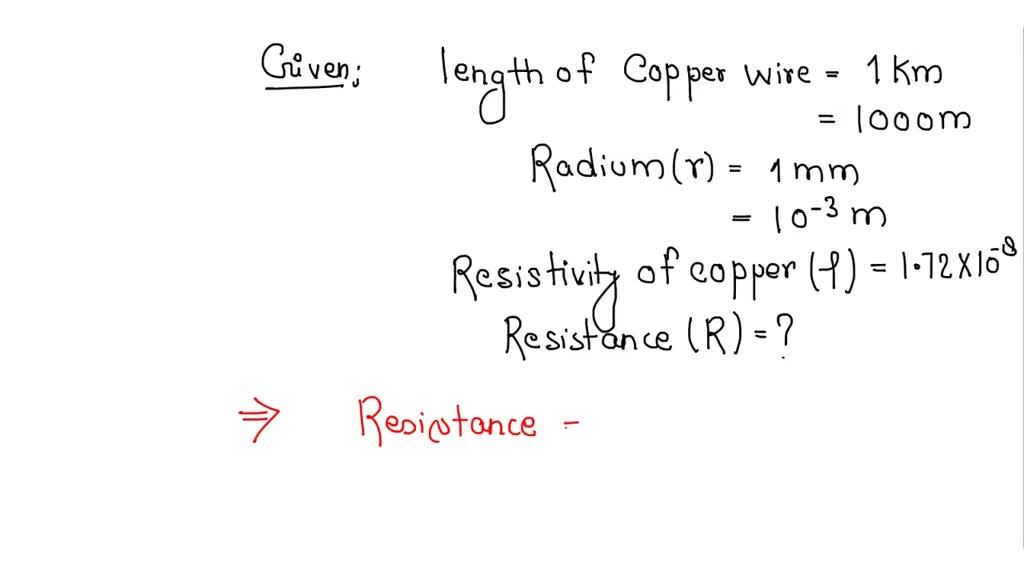 Given; length of Copper wire = 1 Km
= 1000m
Radium (r) = 1 mm
= 10⁻³ m
Resistivity of copper (ρ) = 1.72 X 10⁻⁸
Resistance (R) = ?
⇒ Resistance -